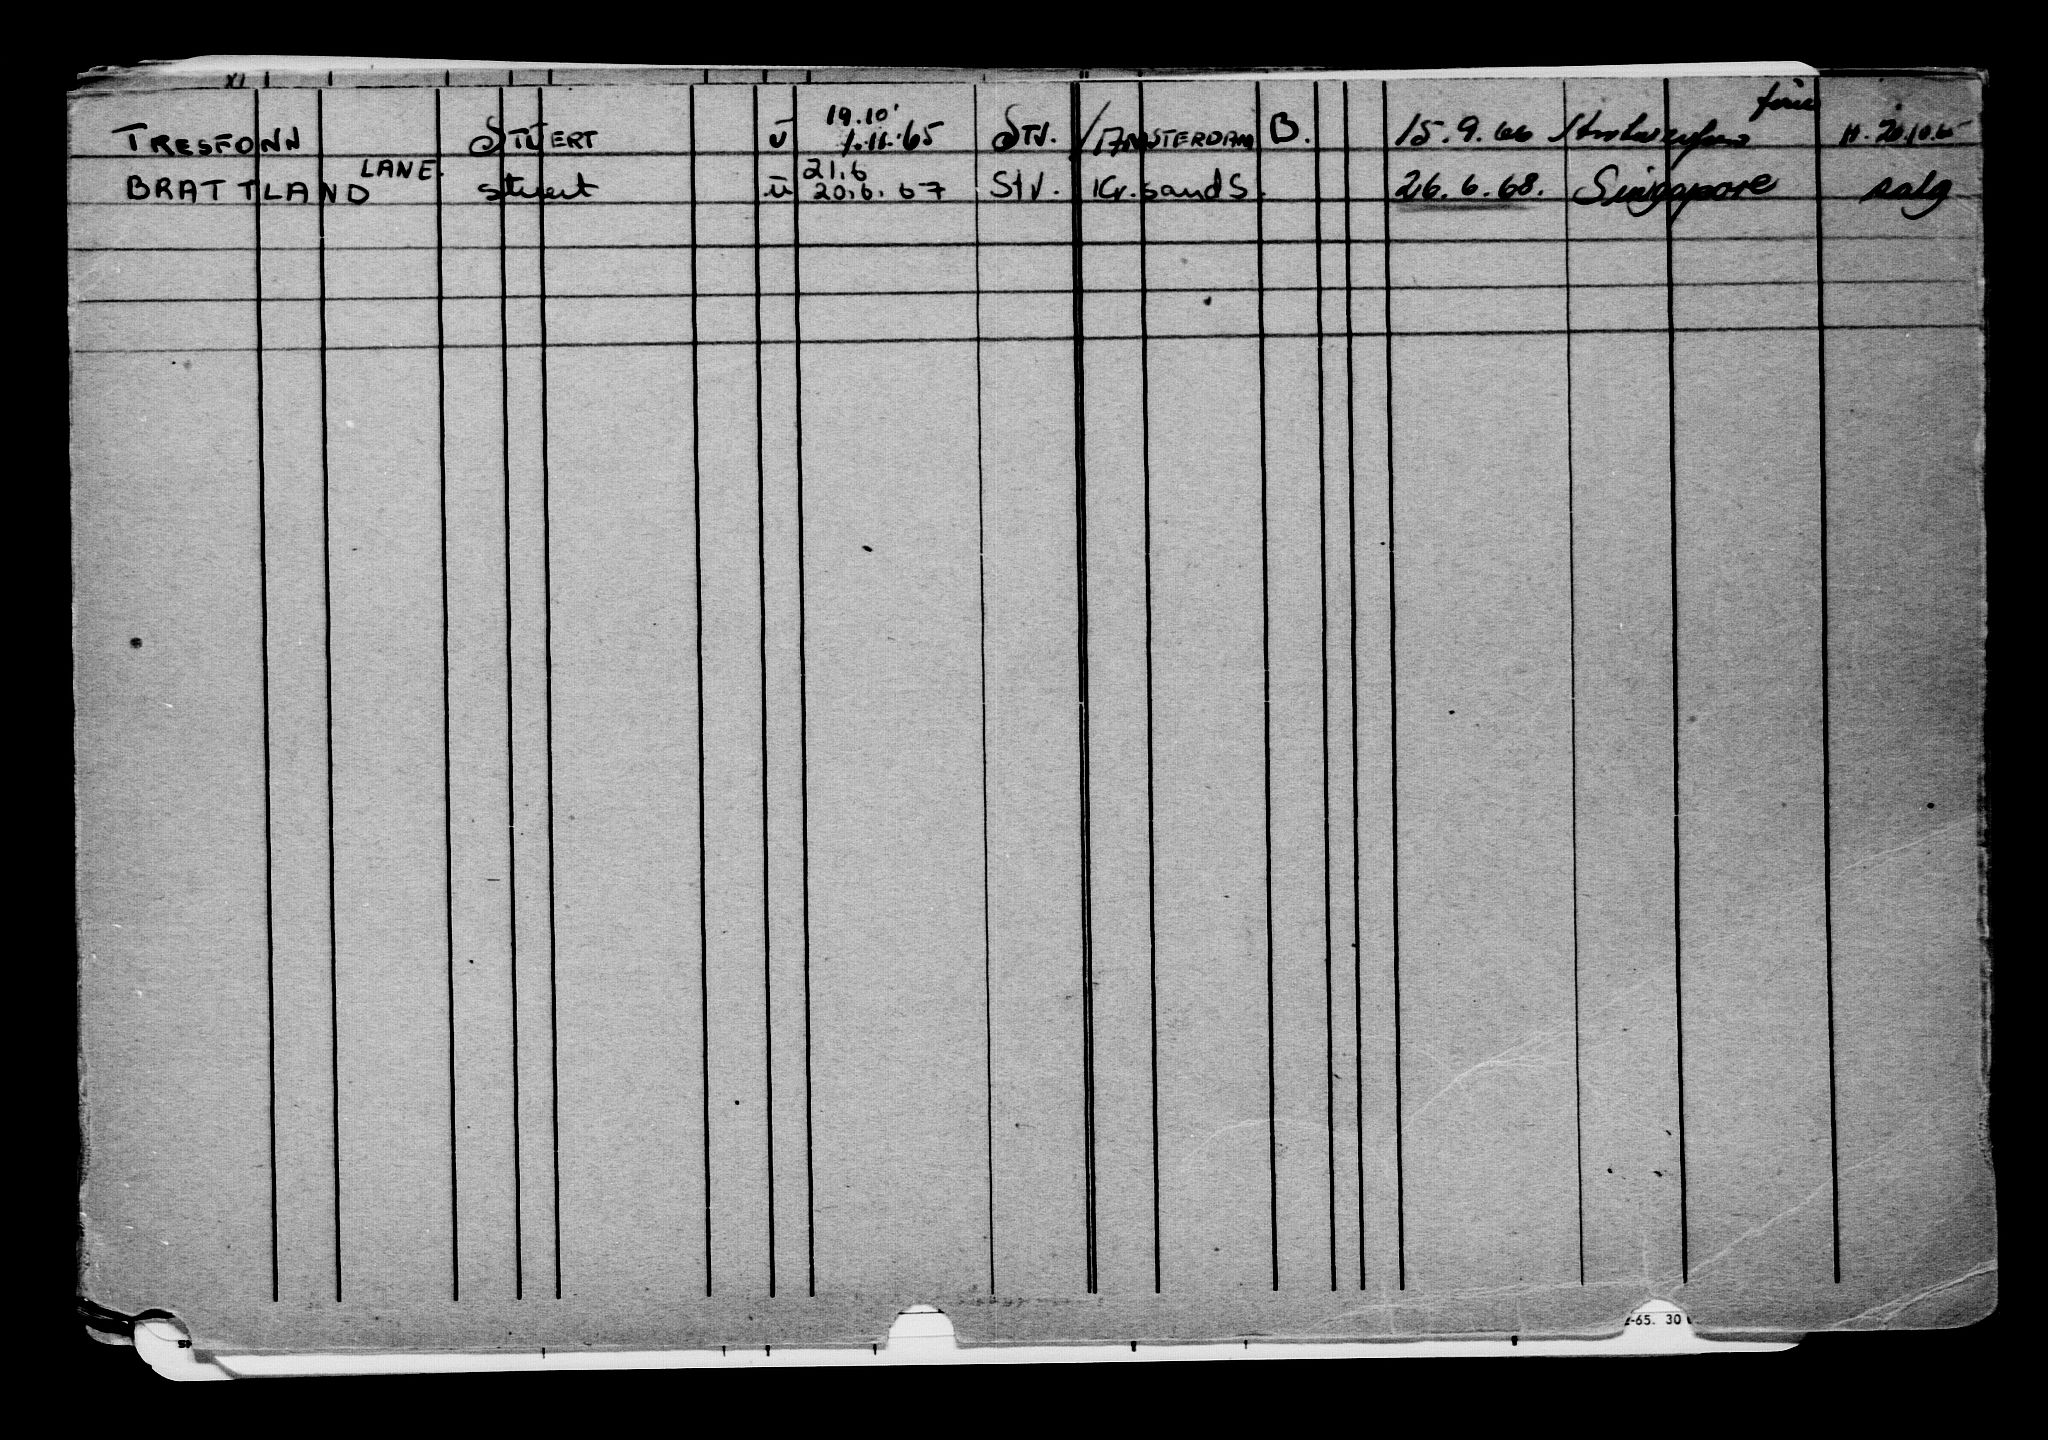 19.10
TRESFONN STUERT ū 1.11.65 STV. / AMSTERDAM B. 15.9.66 H. 20.10.65
LANE. 21.6
BRATTLAND stuert ū 20.6.67 STV. Kr.sand S. 26.6.68. Singapore salg
-65. 30